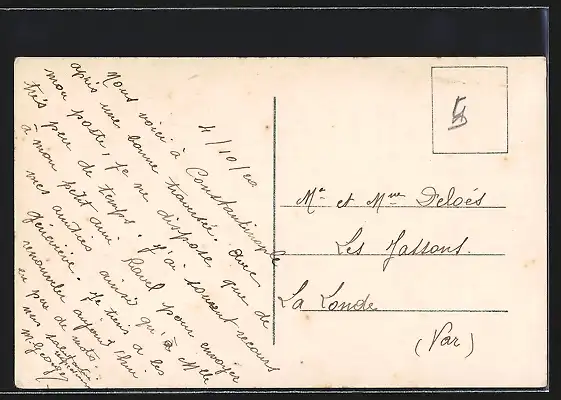 4/10/20
Nous voici à Constantinople
après une bonne traversée. Avec
mon poste, je ne dispose que de
très peu de temps. J'ai souvent recours
à mon petit ami Raoul pour envoyer
mes amitiés ainsi qu'à Melle
Geneviève. Je tiens à les
renouveler aujourd'hui
en peu de mots.
M. Georges
Mr et Mme Deloés
Les Jassons.
La Londe
(Var)